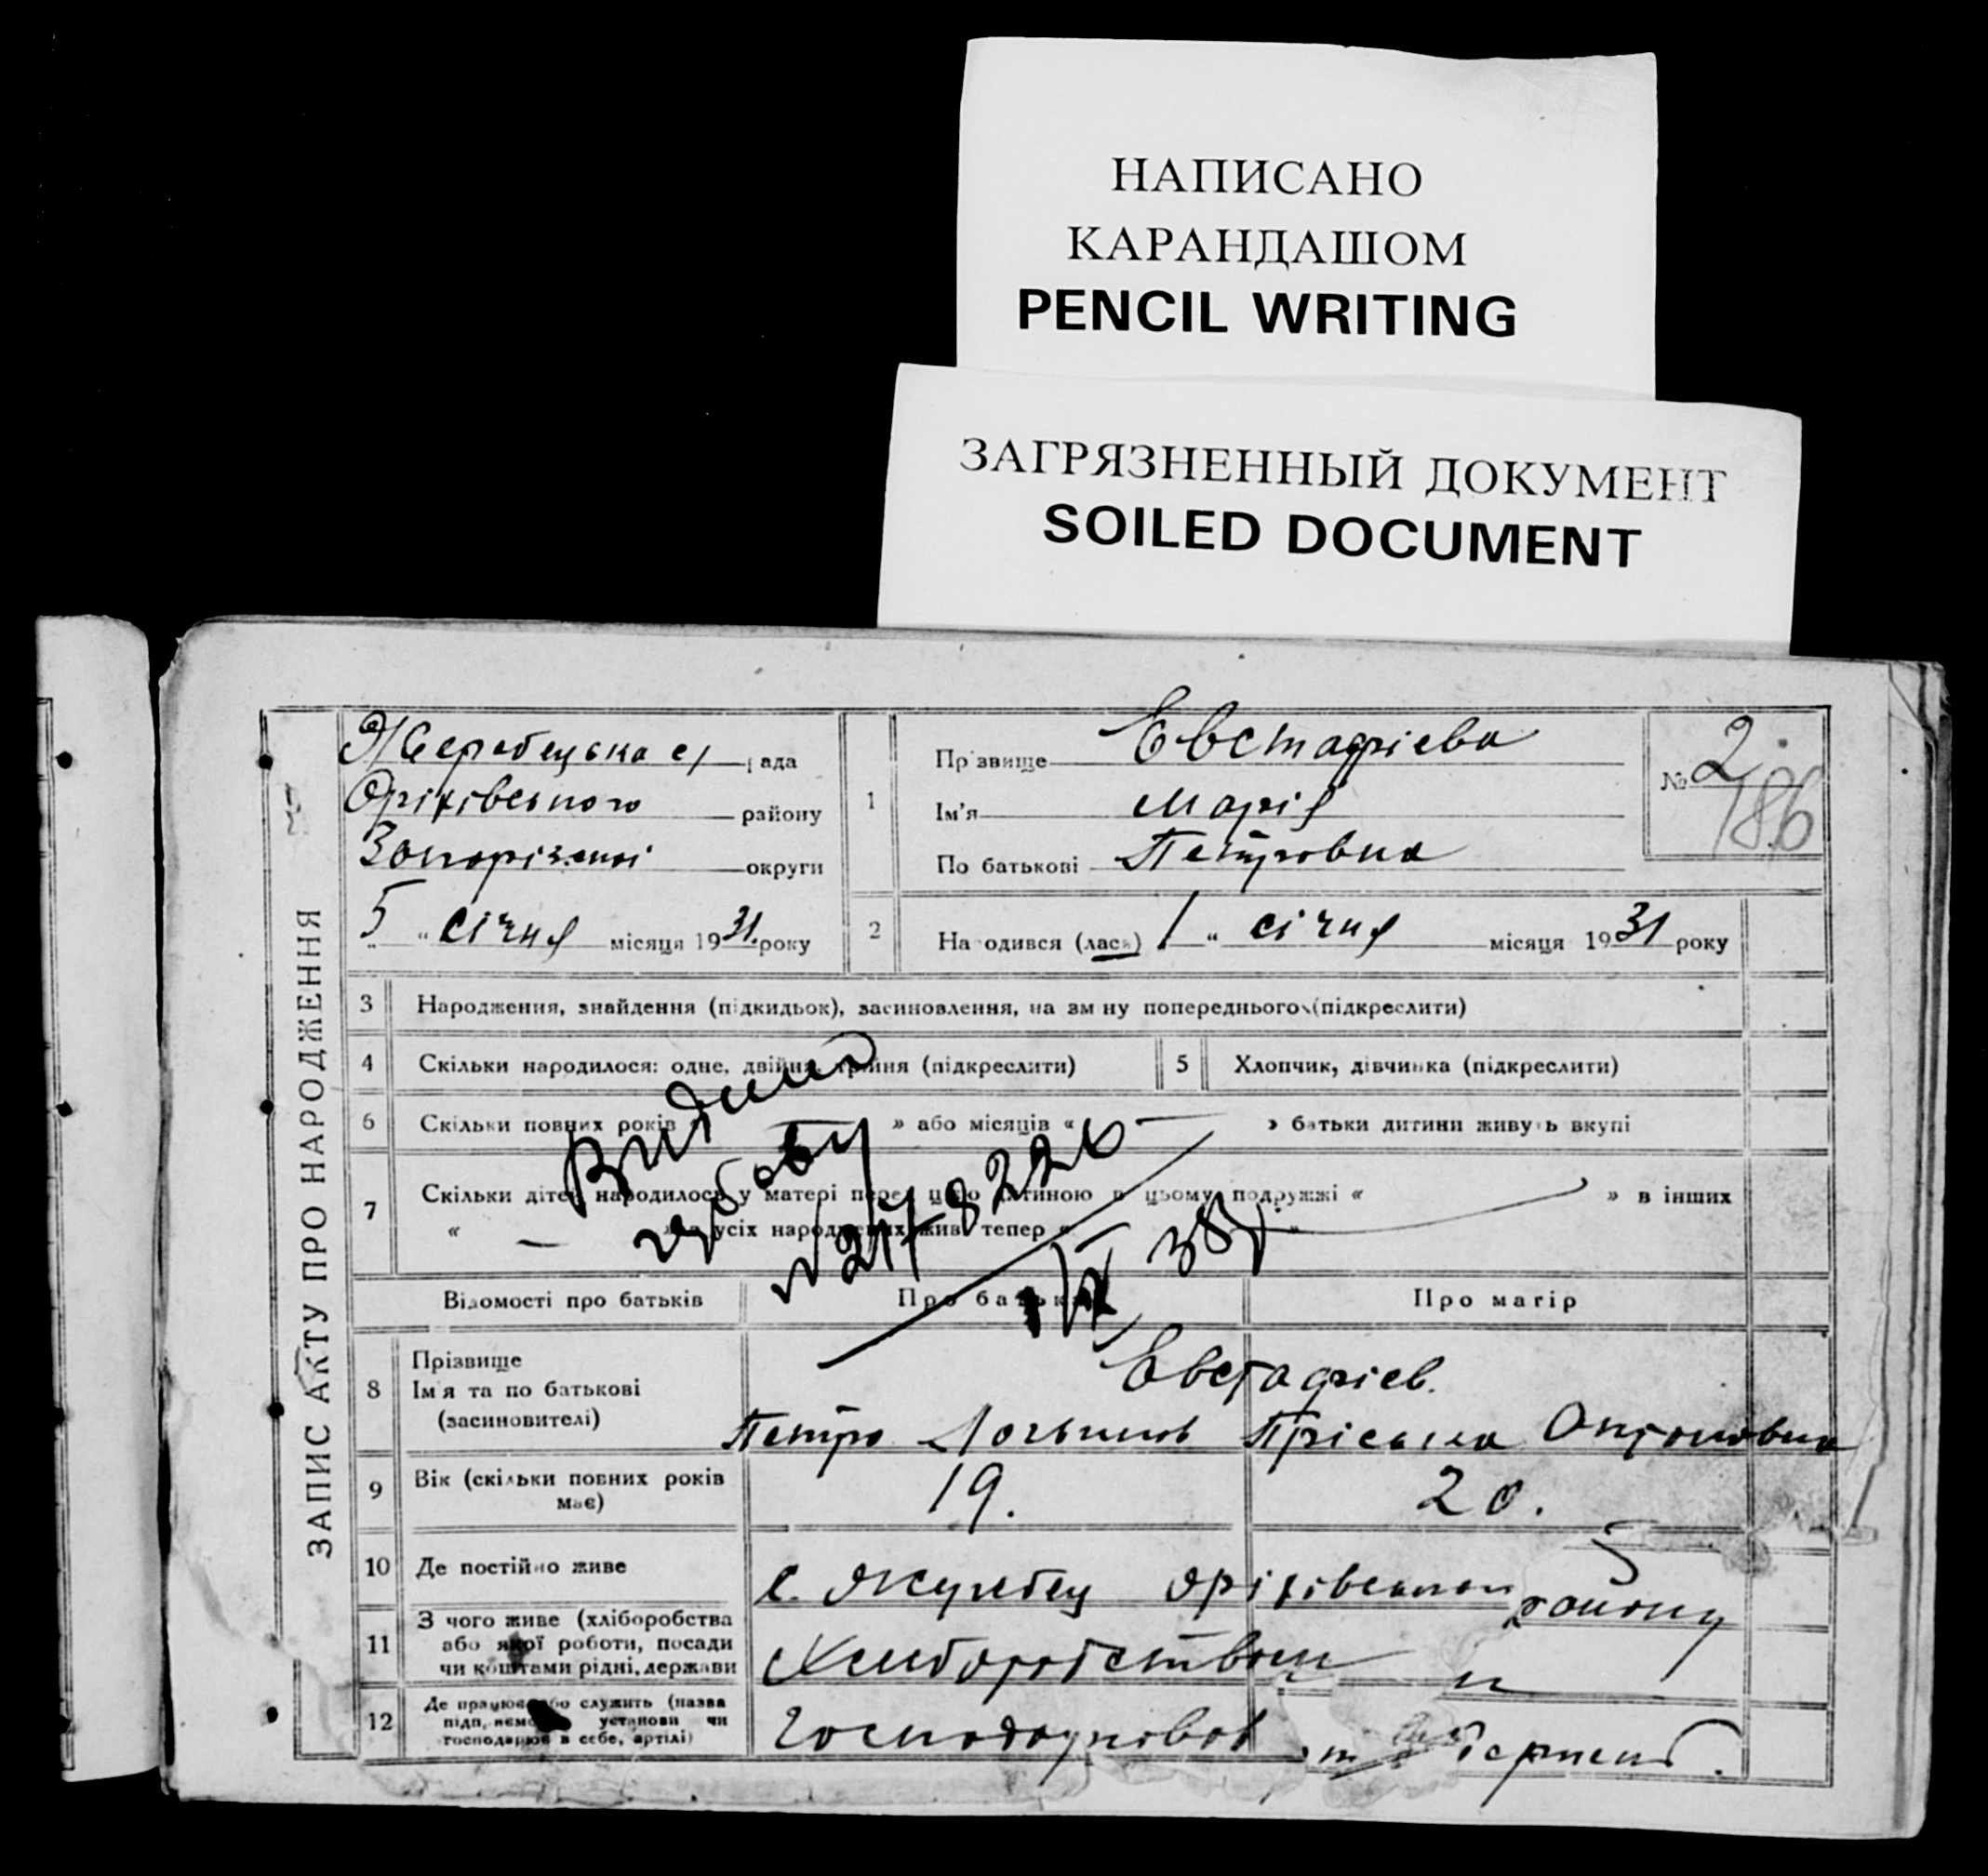 НАПИСАНО
КАРАНДАШОМ
PENCIL WRITING
ЗАГРЯЗНЕННЫЙ ДОКУМЕНТ
SOILED DOCUMENT
ЗАПИС АКТУ ПРО НАРОДЖЕННЯ
Жеребецька с/рада
Оріхівського району
Запорізької округи
5 " січня місяця 1931 року
1
Прізвище Евстафієва
Ім'я Марія
По батькові Петровна
№ 2
186
2 На одився (лася) 1 " січня місяця 1931 року
3 Народження, знайдення (підкидьок), засиновлення, на зміну попереднього (підкреслити)
4 Скільки народилося: одне, двійня, трійня (підкреслити)
5 Хлопчик, дівчинка (підкреслити)
6 Скільки повних років » або місяців « — » батьки дитини живуть вкупі
7 Скільки дітей народилось у матері перед цією дитиною в цьому подружжі « » в інших
« — » з усіх народжених живі тепер « »
№ 2178226
38
Відомості про батьків
Про батька
Про матір
8 Прізвище
Ім'я та по батькові
(засиновителі)
Евстафієв.
Петро
Пріська
9 Вік (скільки повних років має)
19.
20.
10 Де постійно живе
с. Жеребец Оріхівського району
11 З чого живе (хліборобства
або якої роботи, посади
чи коштами рідні, держави
Хліборобством "
12 Де працює або служить (назва
підп, установи чи
господарює в себе, артілі)